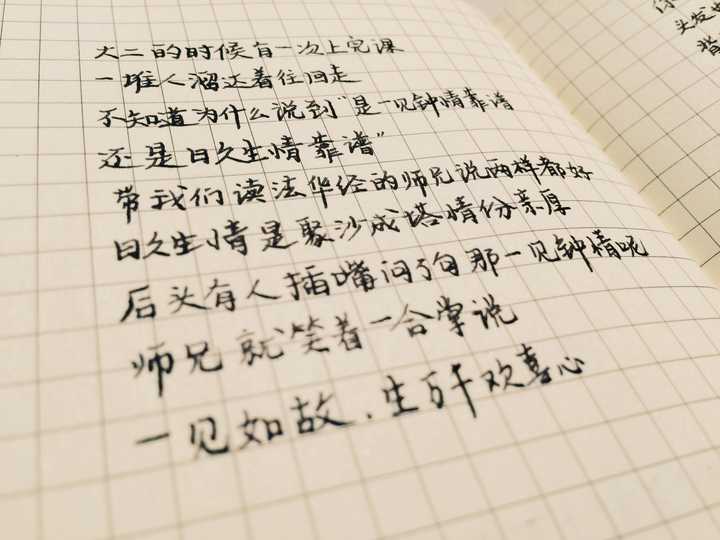 大二的时候有一次上完课
一堆人溜达着往回走
不知道为什么说到"是一见钟情靠谱
还是日久生情靠谱"
带我们读法华经的师兄说两样都好
日久生情是聚沙成塔情份亲厚
后头有人插嘴问了句那一见钟情呢
师兄就笑着一合掌说
一见如故.生万千欢喜心
你
头发